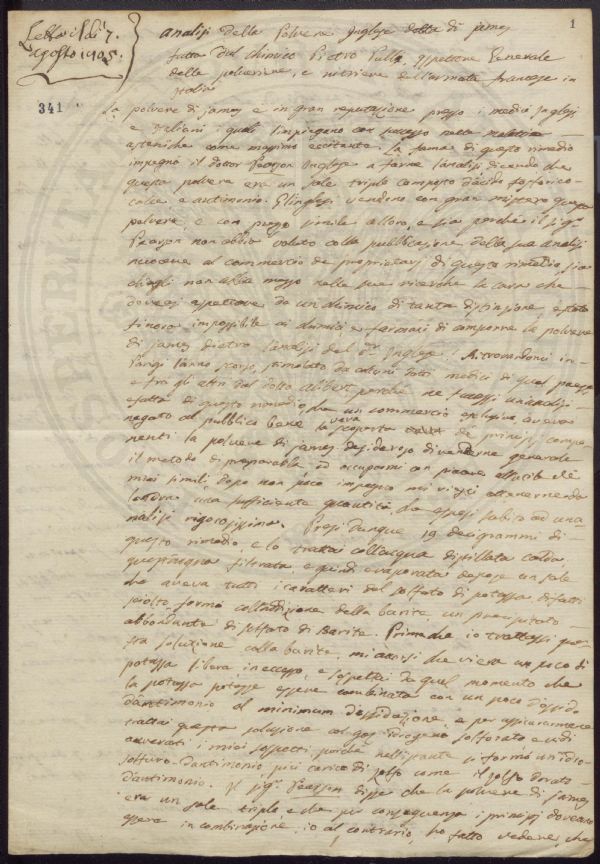 Letto il dì 7.
agosto 1805.
1
341
Analisi della Polvere Inglese detta di James
fatta dal chimico Pietro Pulli, ispettore Generale
delle polveriere, e nitriere dell'armata francese in
Italia
La polvere di James è in gran reputazione presso i medici Inglesi
e Italiani i quali l'impiegano con successo nelle malattie
asteniche come massimo eccitante. La fama di questo rimedio
impegnò il dottor Pearson Inglese a farne l'analisi dicendo che
questa polvere era un sale triplo composto d'acido fosforico
calce e antimonio. Gl'inglesi vendono con gran mistero questa
polvere, e con prezzo simile all'oro, e sia perché il sigr
Pearson non abbia voluto colla pubblicazione della sua analisi
nuocere al commercio de proprietarj di questo rimedio, sia
ch'egli non abbia messo nelle sue ricerche la cura che
doveasi aspettare da un chimico di tanta distinzione, è stato
finora impossibile ai chimici, e farmacisti di comporre la polvere
di James dietro l'analisi del Dr Inglese! Ritrovandomi in
Parigi l'anno scorso, stimolato da alcuni dotti medici di quel paese
e fra gli altri dal dotto Alibert perché ne facessi un'analisi
esatta di questo rimedio, che un commercio esclusivo aveva
negato al pubblico bene la vera scoperta de principj compo
nenti la polvere di James desideroso di renderne generale
il metodo di prepararla ed occuparmi con piacere all'utile de
miei simili, dopo non poco impegno mi riuscì ottenerne da
Londra una sufficiente quantità, la esposi subito ad una
nalisi rigorosissima. Presi dunque 19 decigrammi di
questo rimedio, e lo trattai coll'acqua distillata calda,
quest'acqua filtrata, e quindi evaporata depose un sale
che aveva tutti i caratteri del solfato di potassa difatti
sciolto formò coll'addizione della barite un precipitato
abbondante di solfato di Barite. Prima che io trattassi que
sta soluzione colla barite, m'accorsi che vi era un poco di
potassa libera in eccesso, e sospettai da quel momento che
la potassa potesse essere combinata con un poco d'ossido
d'antimonio al minimum d'ossidazione, e per assicurarmene
trattai questa soluzione col gas idrogeno solforato e vidi
avverati i miei sospetti perché nell'istante si formò un idro
solfuro d'antimonio, più carico di zolfo come il zolfo dorato
d'antimonio. Il sigr Pearson disse che la polvere di James
era un sale triplo e che per conseguenza i principj dovevano
essere in combinazione, io al contrario, ho fatto vedere, che